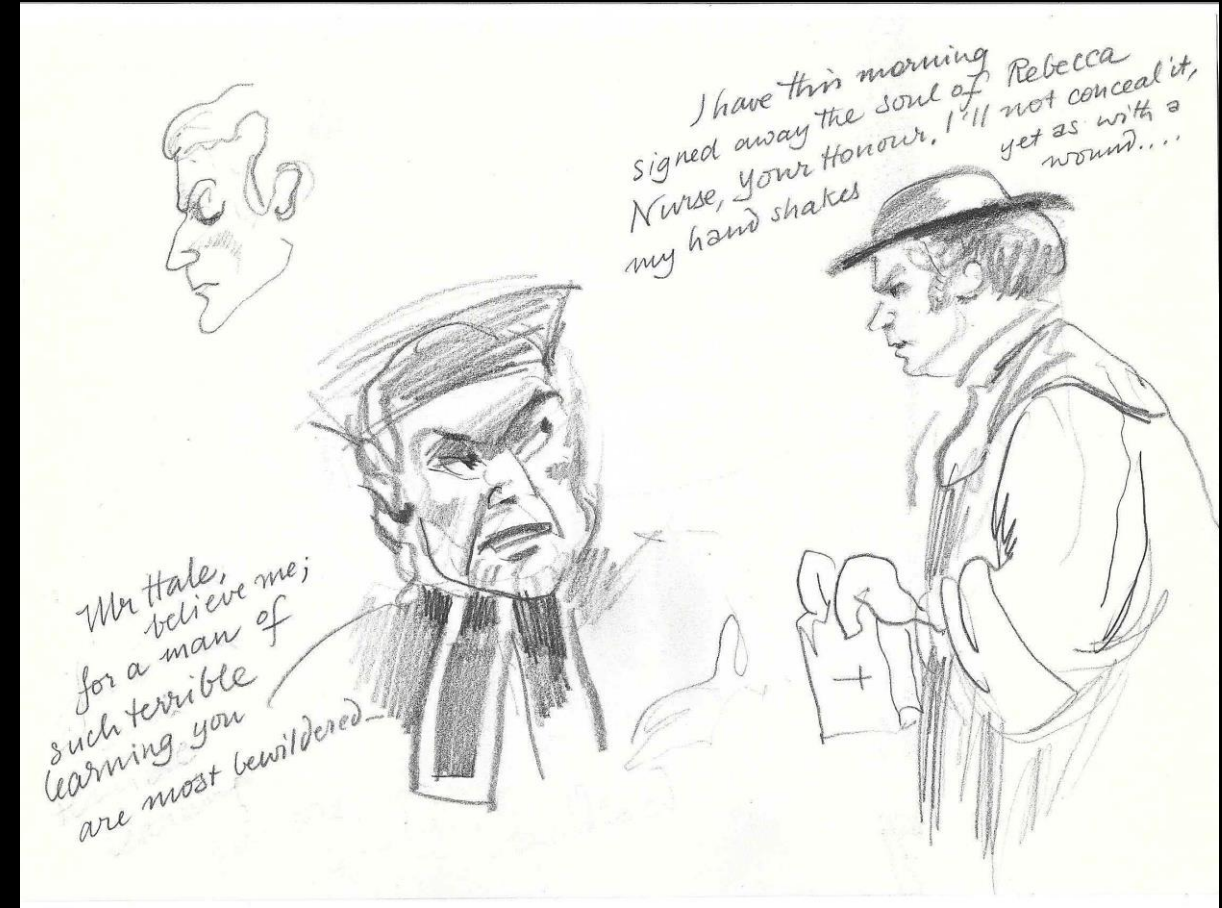 I have this morning
signed away the soul of Rebecca
Nurse, your Honour. I'll not conceal it,
my hand shakes yet as with a
wound....
Mr Hale,
believe me;
for a man of
such terrible
learning you
are most bewildered—